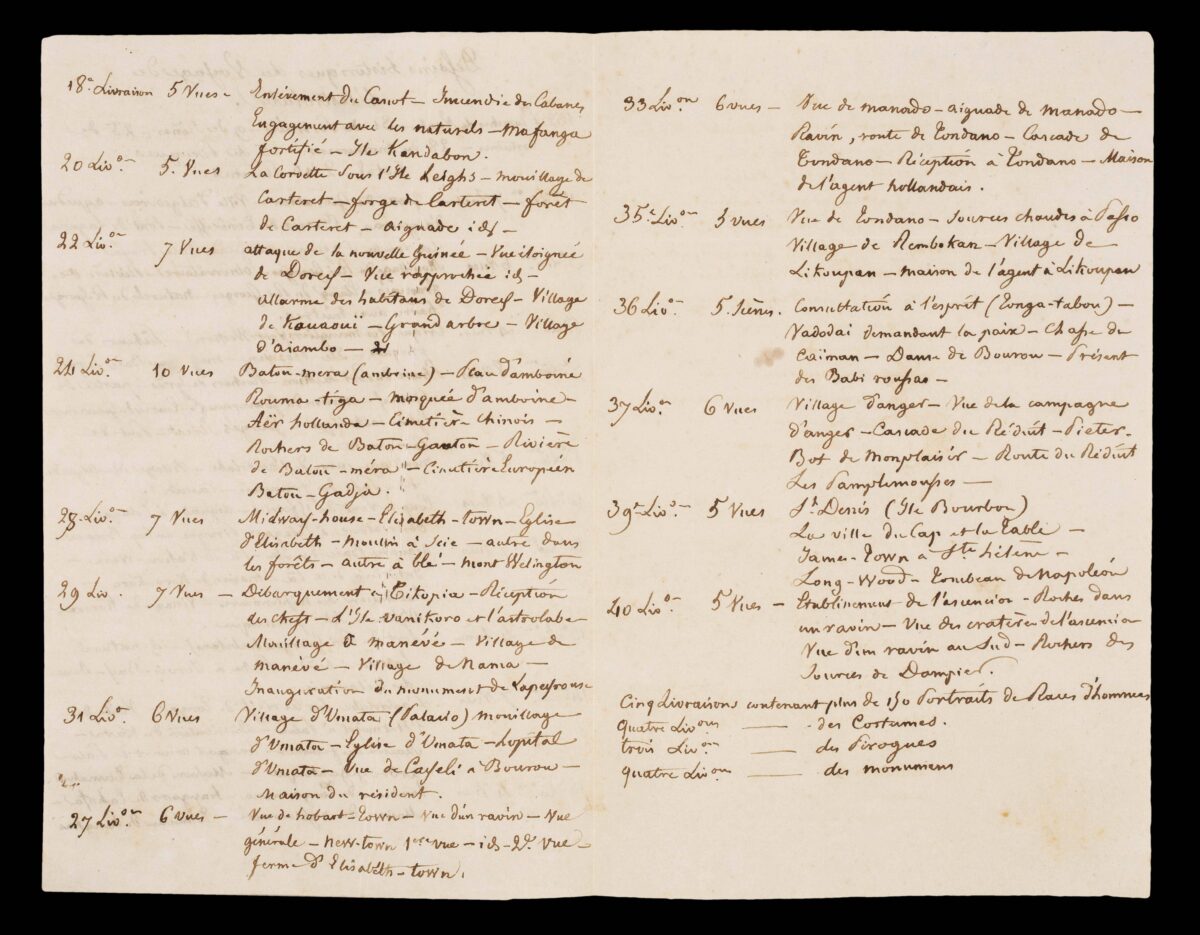 18.e Livraison 5 Vues - Enlévement du Canot - Incendie des Cabanes
Engagement avec les naturels - mafanga
fortifié - Ile Kandabon.
20 Liv.on 5. Vues La Corvette sous l'Ile Leighs - mouillage de
Carteret - forge de Carteret - forêt
de Carteret - aiguade id -
22 Liv.on 7 Vues attaque de la nouvelle Guinée - Vue éloignée
de Dorey - Vue rapprochée id -
allarme des habitans de Dorey - Village
de Kouaouï - Grand arbre - Village
d'aiambo -
24 Liv.on 10 Vues Batou-mera (amboine) - Peau d'amboine
Rouma-tiga - mosquée d'amboine -
Aër hollanda - Cimetière chinois -
Rochers de Batou-Gauton - Rivière
de Batou-méra - Cimetière Européen
Batou-Gadja.
Liv.on 7 Vues Midway-house - Elisabeth-town - Eglise
d'Elisabeth - moulin à Scie - autre dans
les forêts - autre à blé - mont Welington
29 Liv. 7 Vues - Débarquement à Tikopia - Réception
des chefs - L'Ile Vanikoro et l'astrolabe
Mouillage de manévé - Village de
manévé - Village de Nama -
Inauguration du monument de Lapeyrouse
31 Liv.on 6 Vues Village d'Umata (Palacio) mouillage
d'Umata - Eglise d'Umata - hopital
d'Umata - Vue de Cayeli à Bourou -
Maison du résident.
27 Liv.on 6 vues - Vue de hobart-Town - vue d'un ravin - Vue
générale - new-town 1ere vue - id - 2e. vue -
ferme d'Elisabeth-town.
33 Liv.on 6 vues - Vue de manado - aiguade de manado -
Ravin, route de Tondano - Cascade de
Tondano - Réception à Tondano - Maison
de l'agent hollandais.
35.e Liv.on 5 vues Vue de Tondano - sources chaudes à Passo
Village de Rembokan - Village de
Likoupan - maison de l'agent à Likoupan
36 Liv.on 5. Scènes. Consultation à l'esprit (Tonga-tabou) -
Vadodai demandant la paix - Chasse de
Caïman - Danse de Bourou - Présent
des Babi roussas -
37 Liv.on 6 Vues Village d'anger - Vue de la campagne
d'anger - Cascade du Réduit - Pieter-
Bot de Monplaisir - Route du Réduit
Les Pamplemousses -
39e Liv.on 5 Vues St. Denis (Ile Bourbon)
La ville du Cap et la Table -
James-Town à Ste hélène -
Long-Wood - Tombeau de Napoléon
40 Liv.on 5 Vues - Etablissement de l'ascencion - Roches dans
un ravin - Vue des cratères de l'ascencion
Vue d'un ravin au Sud - Rochers des
Sources de Dampier.
Cinq Livraisons contenant plus de 150 Portraits de Races d'hommes
Quatre Liv.ons — des Costumes.
trois Liv.on — des Pirogues
quatre Liv.on — des monumens